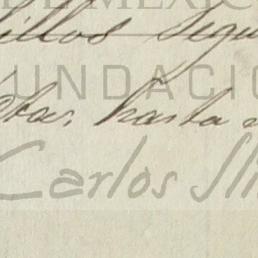 DE MÉXICO
illos segu
UNDACIÓ
hasta
Carlos Sli